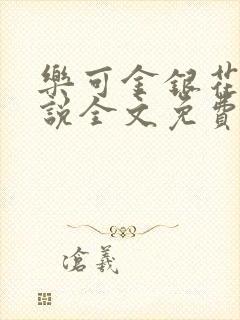 樂可金銀花
說全文免費
滄義